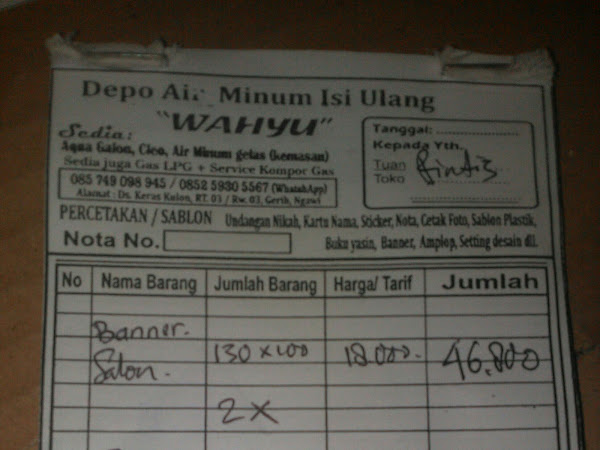 Depo Air Minum Isi Ulang
"WAHYU"
Sedia:
Aqua Galon, Cleo, Air Minum gelas (kemasan)
Sedia juga Gas LPG + Service Kompor Gas
085 749 098 945 / 0852 5930 5567 (WhatsApp)
Alamat : Ds. Keras Kulon, RT. 03 / Rw. 03, Gerih, Ngawi
Tanggal:
Kepada Yth.
Tuan
Toko
PERCETAKAN / SABLON Undangan Nikah, Kartu Nama, Sticker, Nota, Cetak Foto, Sablon Plastik,
Buku yasin, Banner, Amplop, Setting desain dll.
Nota No.
No Nama Barang Jumlah Barang Harga/ Tarif Jumlah
Banner.
Salon. 130 x 100 18.000. 46.800
2 X